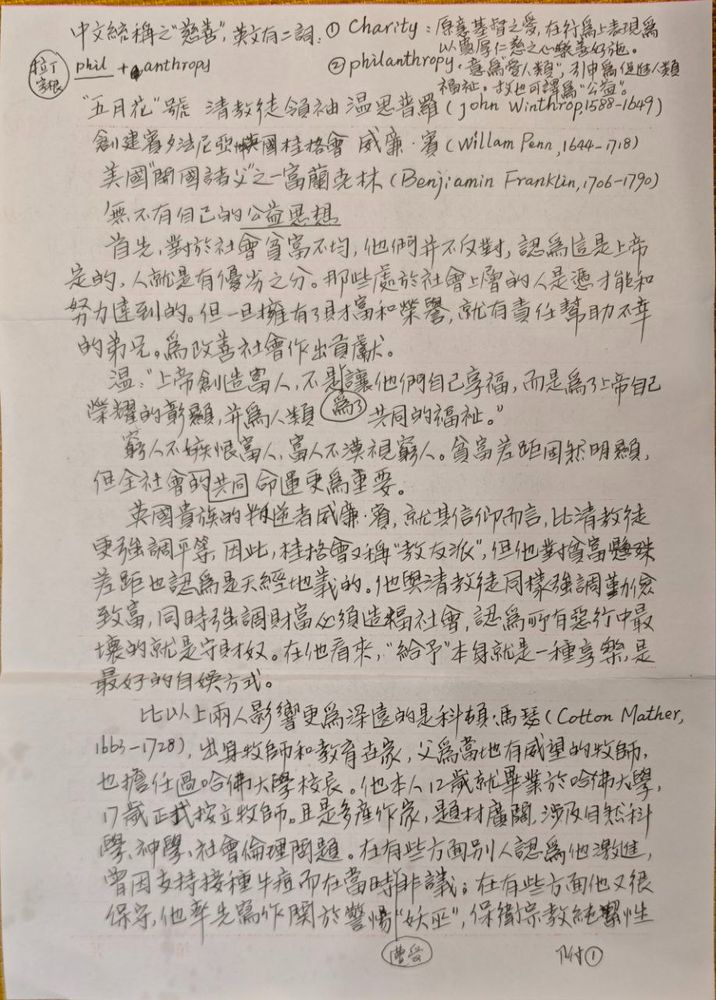 中文統稱之"慈善",英文有二詞:① Charity:原意基督之愛,在行爲上表現爲
以寬厚仁慈之心樂善好施。
拉丁字根 phil + anthropy ② philanthropy.意爲"愛人類",引申爲促進人類
福祉。故也可譯爲"公益"。
"五月花"號 清教徒領袖 温思普羅(John Winthrop,1588-1649)
創建賓夕法尼亞 英國桂格會 威廉·賓(Willam Penn,1644-1718)
美國"開國諸父"之一富蘭克林(Benjiamin Franklin,1706-1790)
無不有自己的公益思想
首先,對於社會貧富不均,他們并不反對,認爲這是上帝
定的,人就是有優劣之分。那些處於社會上層的人是憑才能和
努力達到的。但一旦擁有了財富和榮譽,就有責任幫助不幸
的弟兄。爲改善社會作出貢獻。
温:"上帝創造富人,不是讓他們自己享福,而是爲了上帝自己
榮耀的彰顯,并爲人類 爲了 共同的福祉。"
窮人不嫉恨富人,富人不漠視窮人。貧富差距固然明顯,
但全社會的共同命運更爲重要。
英國貴族的叛逆者威廉·賓,就其信仰而言,比清教徒
更強調平等,因此,桂格會又稱"教友派",但他對貧富懸殊
差距也認爲是天經地義的。他與清教徒同樣強調勤儉
致富,同時強調財富必須造福社會,認爲所有惡行中最
壞的就是守財奴。在他看來,"給予"本身就是一種享樂,是
最好的自娛方式。
比以上兩人影響更爲深遠的是科頓·馬瑟(Cotton Mather,
1663-1728),出身牧師和教育世家,父爲當地有威望的牧師,
也擔任過哈佛大學校長。他本人12歲就畢業於哈佛大學,
17歲正式按立牧師。且是多産作家,題材廣闊,涉及自然科
學、神學、社會倫理問題。在有些方面別人認爲他激進,
曾因支持接種牛痘而在當時 非議;在有些方面他又很
保守,他率先寫作關於警惕"妖巫",保衛宗教純潔性
曹蓉 附①